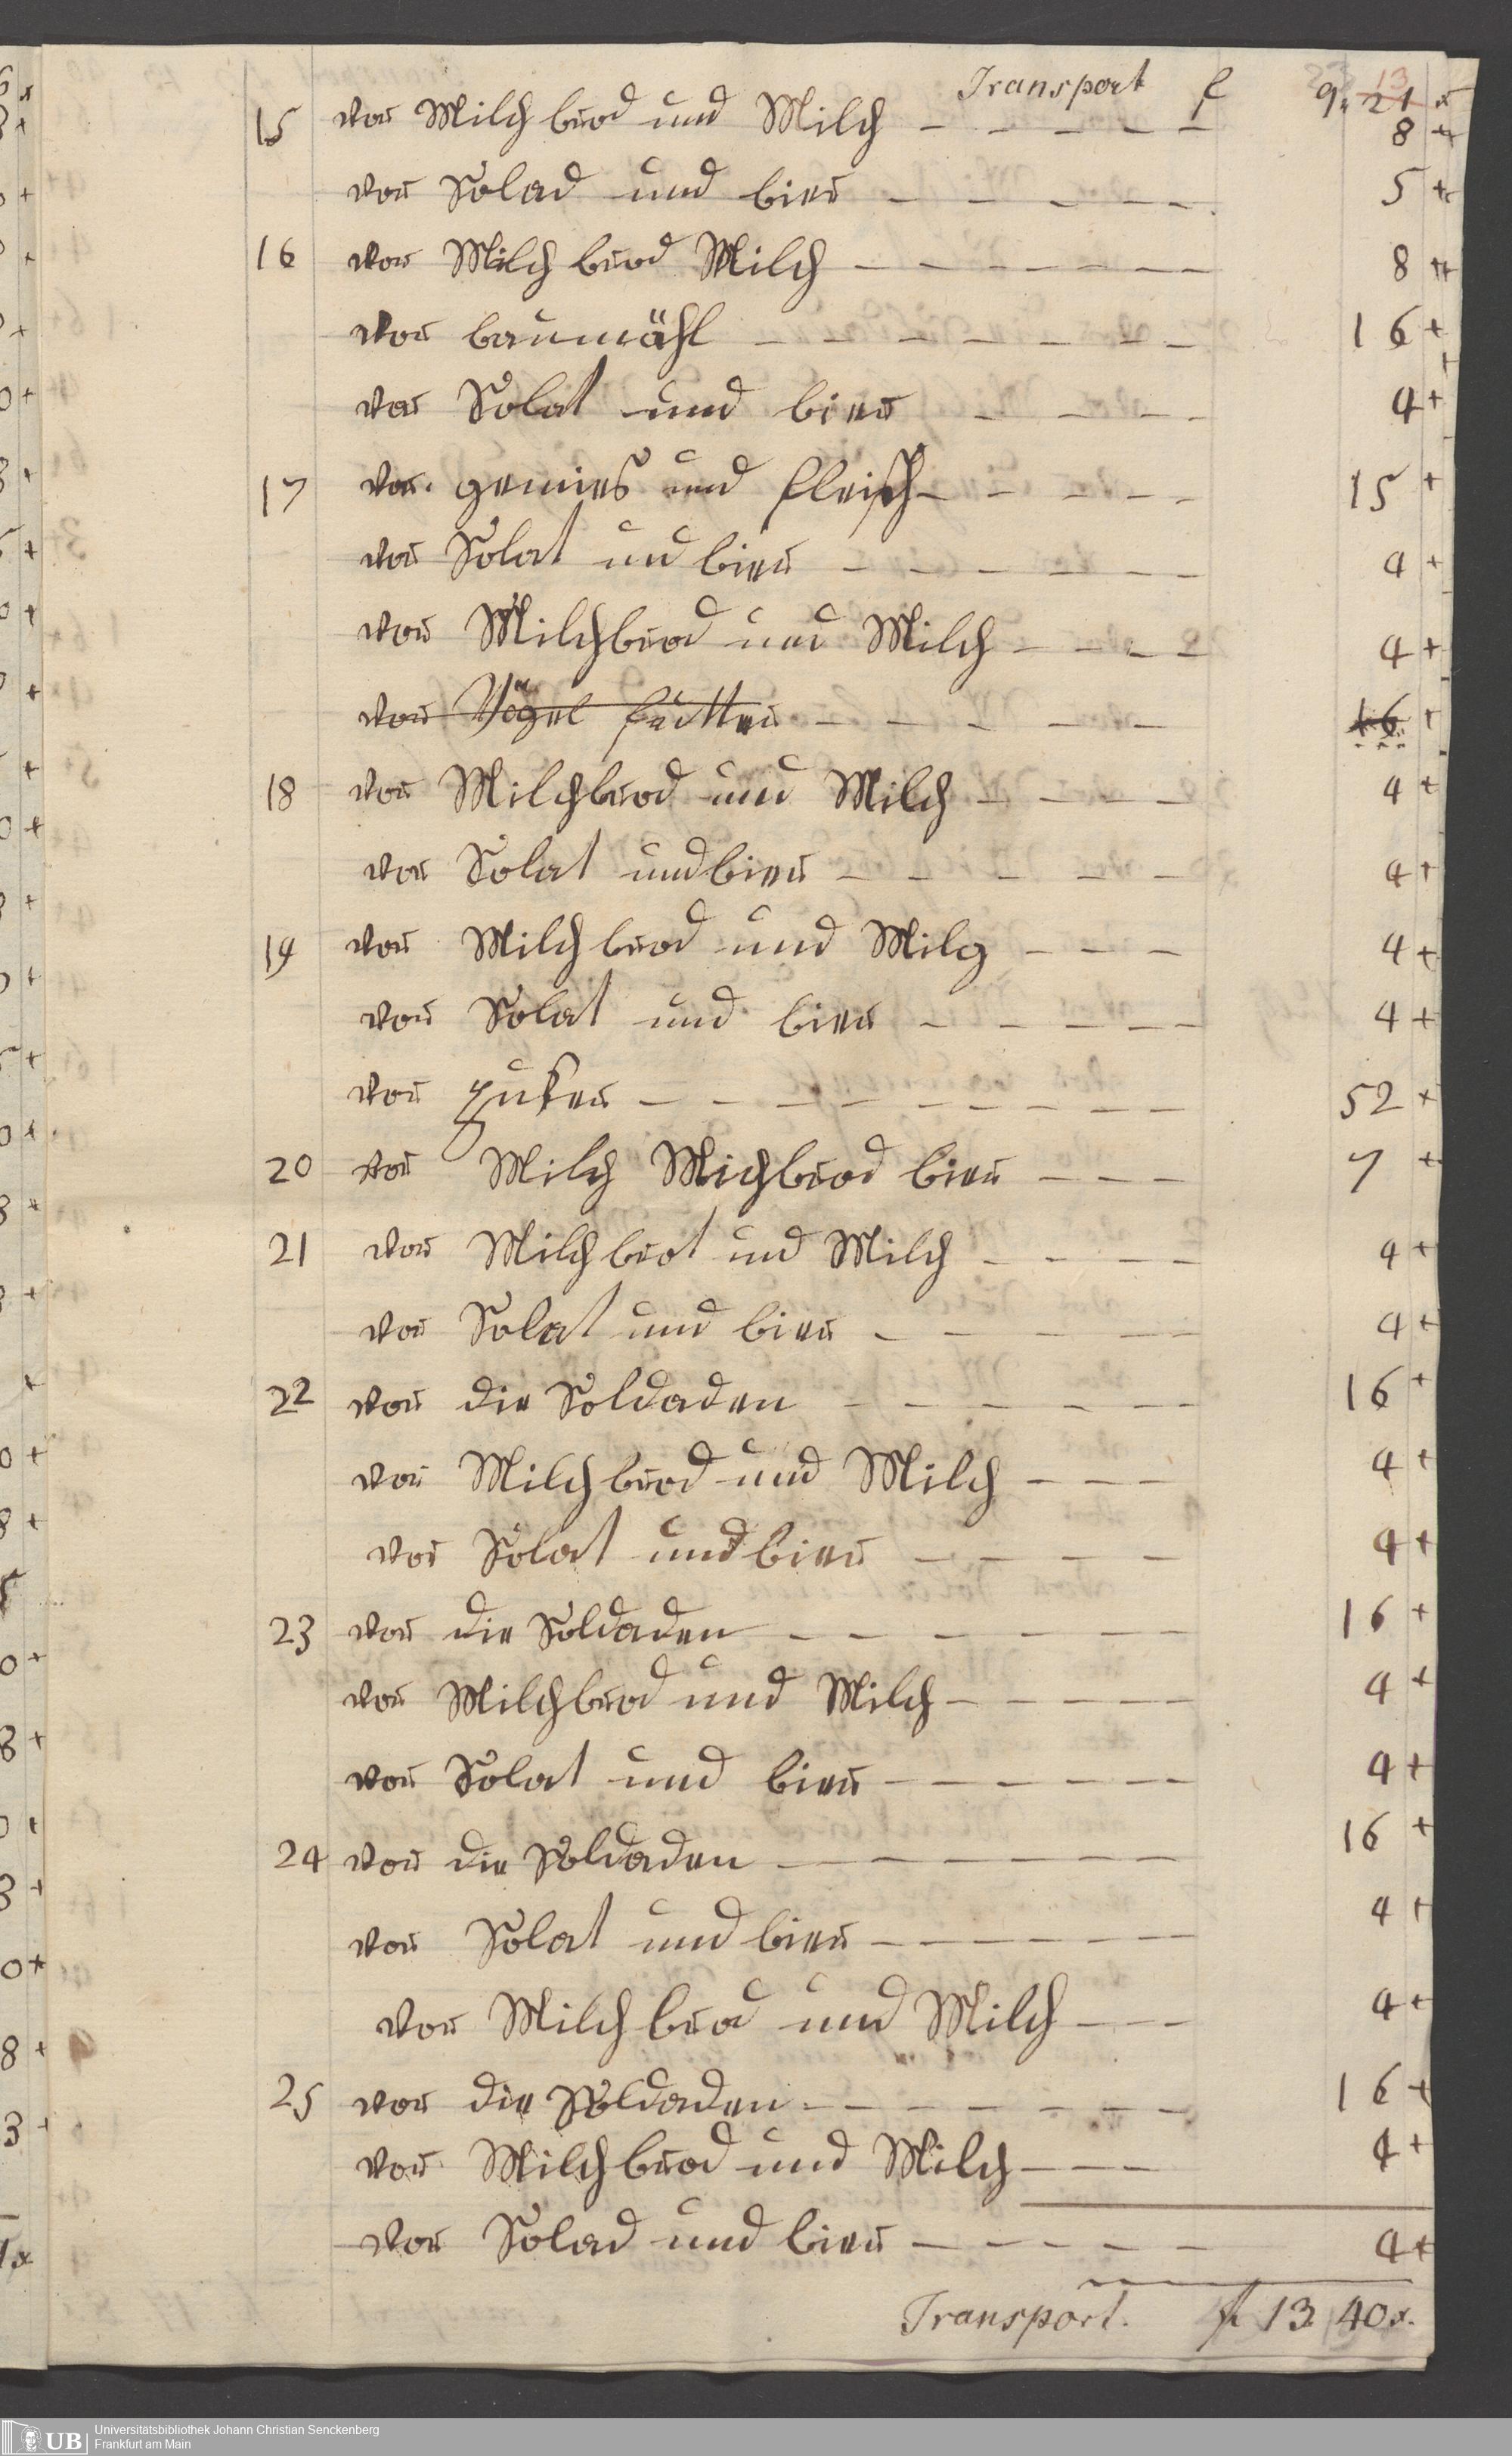 Transport f 9. 21 x
13
15 vor Milch brod und Milch - - - - - 8 x
vor Solad und bier - - - - - 5 x
16 vor Milch brod Milch - - - - - - 8 x
vor baumöhl - - - - - - - 16 x
vor Solat und bier - - - - 4 x
17 vor gemies und fleisch - - - - - 15 x
vor Solat und bier - - - - - - 4 x
vor Milchbrod und Milch - - - - 4 x
vor Vögel futter - - - - - - 16 x
18 vor Milchbrod und Milch - - - - 4 x
vor Solat und bier - - - - - - 4 x
19 vor Milch brod und Milg - - - 4 x
vor Solat und bier - - - - - 4 x
vor zuker - - - - - - - - - 52 x
20 vor Milch Michbrod bier - - - 7 x
21 vor Milch brot und Milch - - - - 4 x
vor Solat und bier - - - - - 4 x
22 vor die Soldaden - - - - - - 16 x
vor Milch brod und Milch - - - 4 x
vor Solat und bier - - - - 4 x
23 vor die Soldaden - - - - - - 16 x
vor Milchbrod und Milch - - - - - 4 x
vor Solat und bier - - - - - - 4 x
24 vor die Soldaden - - - - - - 16 x
vor Solat und bier - - - - - - 4 x
vor Milch brod und Milch - - - 4 x
25 vor die Soldaden - - - - - - - 16 x
vor Milch brod und Milch - - - 4 x
vor Solad und bier - - - - - 4 x
Transport. f 13 40 x.
UB Universitätsbibliothek Johann Christian Senckenberg
Frankfurt am Main